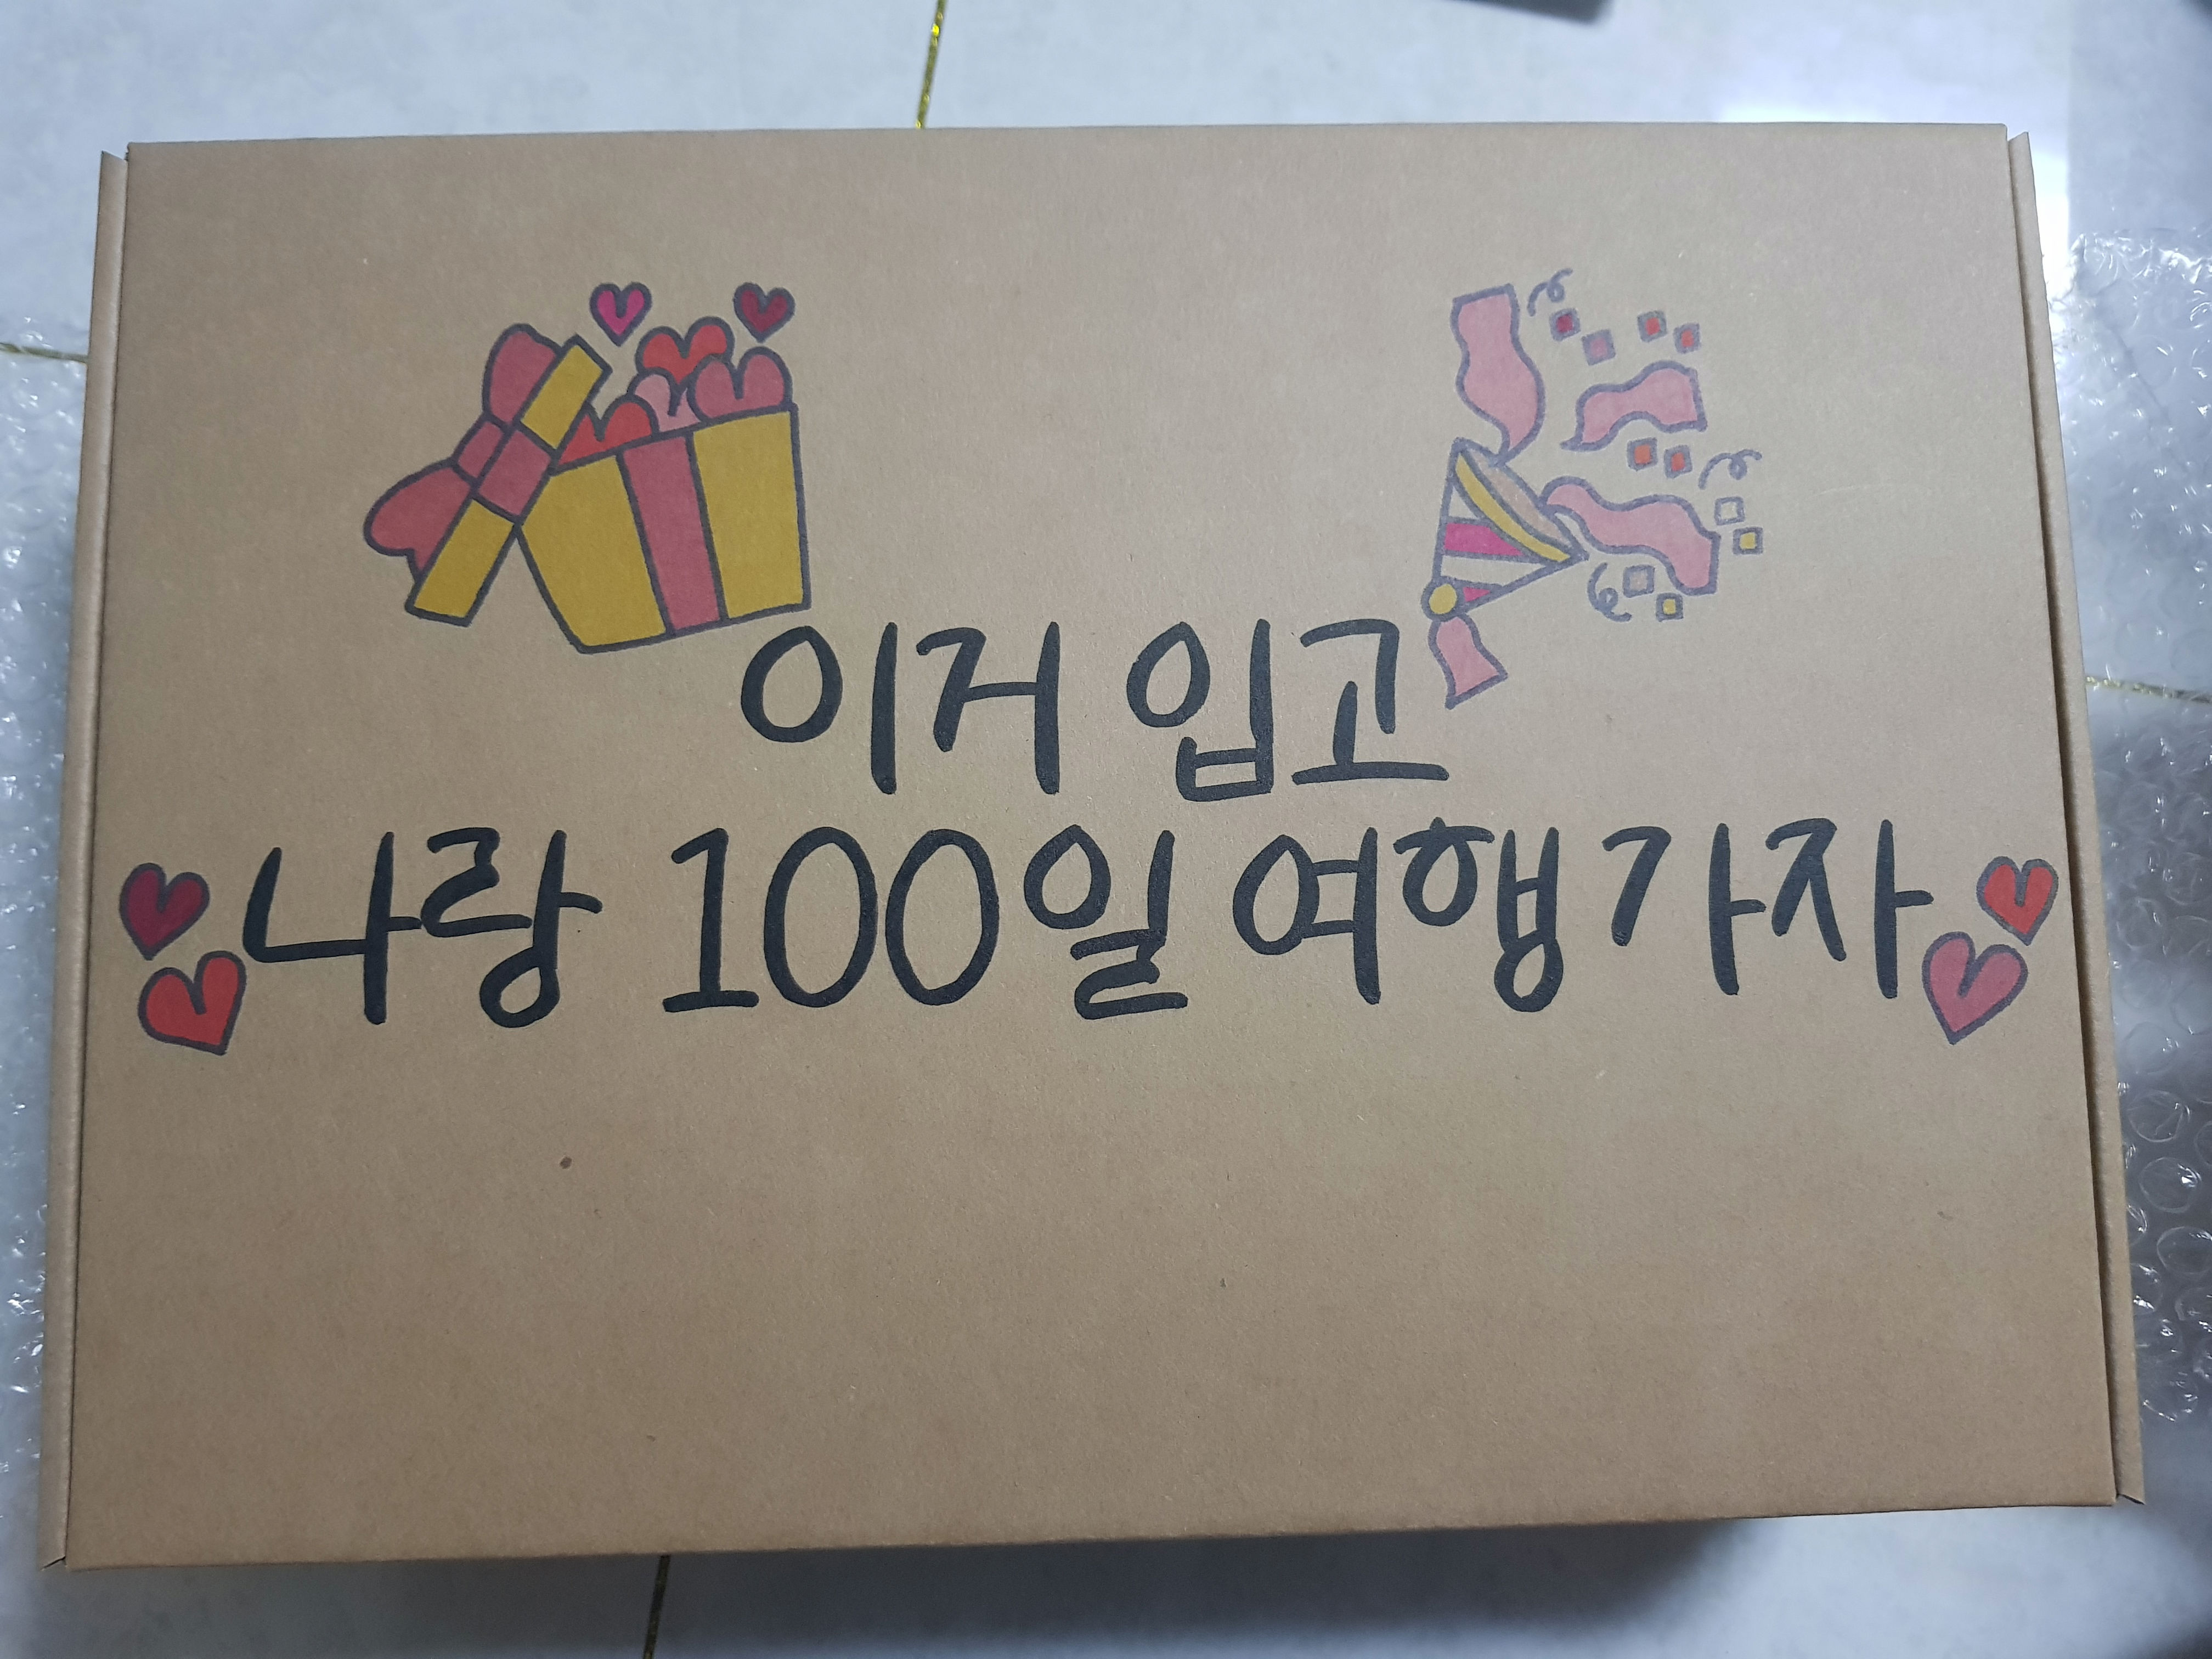 이거 입고
나랑 100일 여행 가자